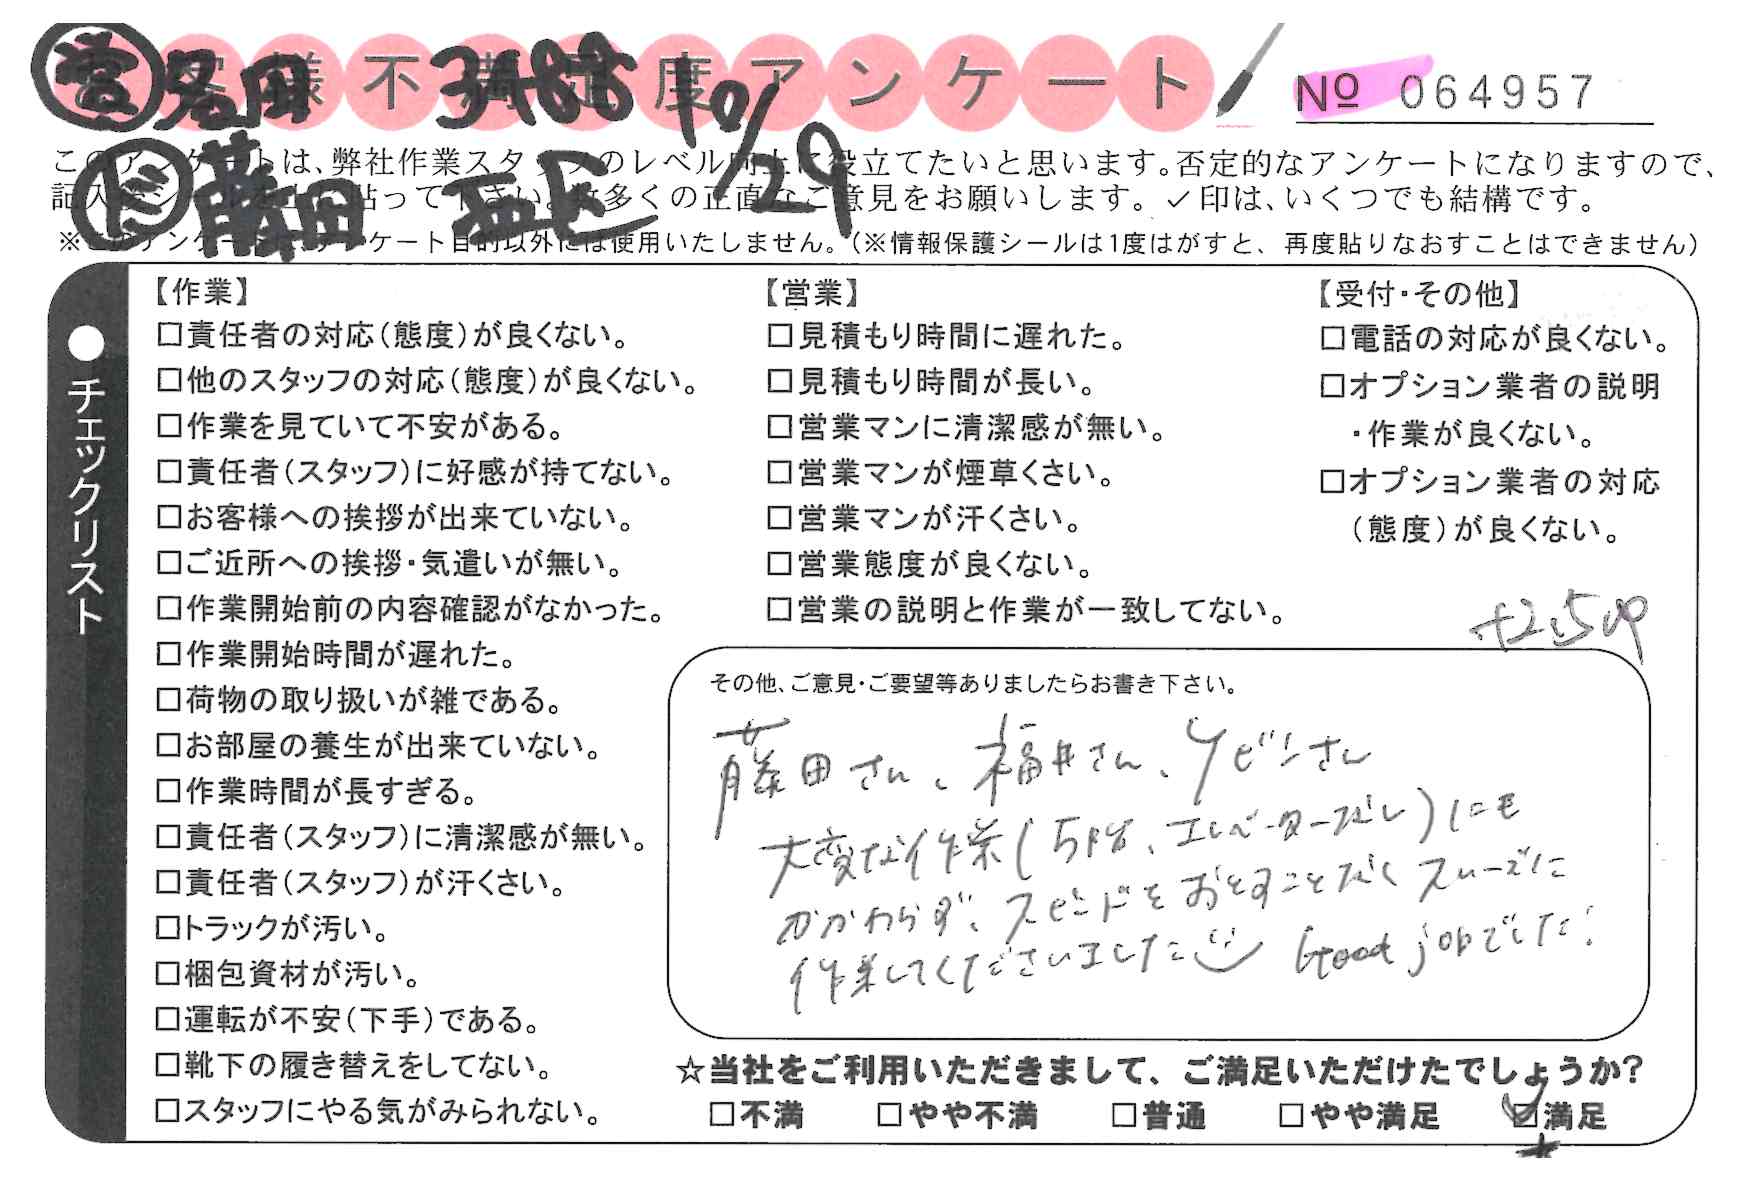 お客様不満足度アンケート
№ 064957
営 名田 3488 10/29
ド 藤田
このアンケートは、弊社作業スタッフのレベル向上に役立てたいと思います。否定的なアンケートになりますので、
記入後シールを上に貼って下さい。数多くの正直なご意見をお願いします。✓印は、いくつでも結構です。
※このアンケートは、アンケート目的以外には使用いたしません。(※情報保護シールは1度はがすと、再度貼りなおすことはできません)
●チェックリスト
【作業】
□責任者の対応(態度)が良くない。
□他のスタッフの対応(態度)が良くない。
□作業を見ていて不安がある。
□責任者(スタッフ)に好感が持てない。
□お客様への挨拶が出来ていない。
□ご近所への挨拶・気遣いが無い。
□作業開始前の内容確認がなかった。
□作業開始時間が遅れた。
□荷物の取り扱いが雑である。
□お部屋の養生が出来ていない。
□作業時間が長すぎる。
□責任者(スタッフ)に清潔感が無い。
□責任者(スタッフ)が汗くさい。
□トラックが汚い。
□梱包資材が汚い。
□運転が不安(下手)である。
□靴下の履き替えをしてない。
□スタッフにやる気がみられない。
【営業】
□見積もり時間に遅れた。
□見積もり時間が長い。
□営業マンに清潔感が無い。
□営業マンが煙草くさい。
□営業マンが汗くさい。
□営業態度が良くない。
□営業の説明と作業が一致してない。
【受付・その他】
□電話の対応が良くない。
□オプション業者の説明
・作業が良くない。
□オプション業者の対応
(態度)が良くない。
その他、ご意見・ご要望等ありましたらお書き下さい。
藤田さん、福井さん、ケビンさん
大変な作業(5階、エレベーターなし)にも
かかわらず、スピードをおとすことなくスムーズに
作業してくださいました Good jobでした!
☆当社をご利用いただきまして、ご満足いただけたでしょうか?
□不満 □やや不満 □普通 □やや満足 ☑満足